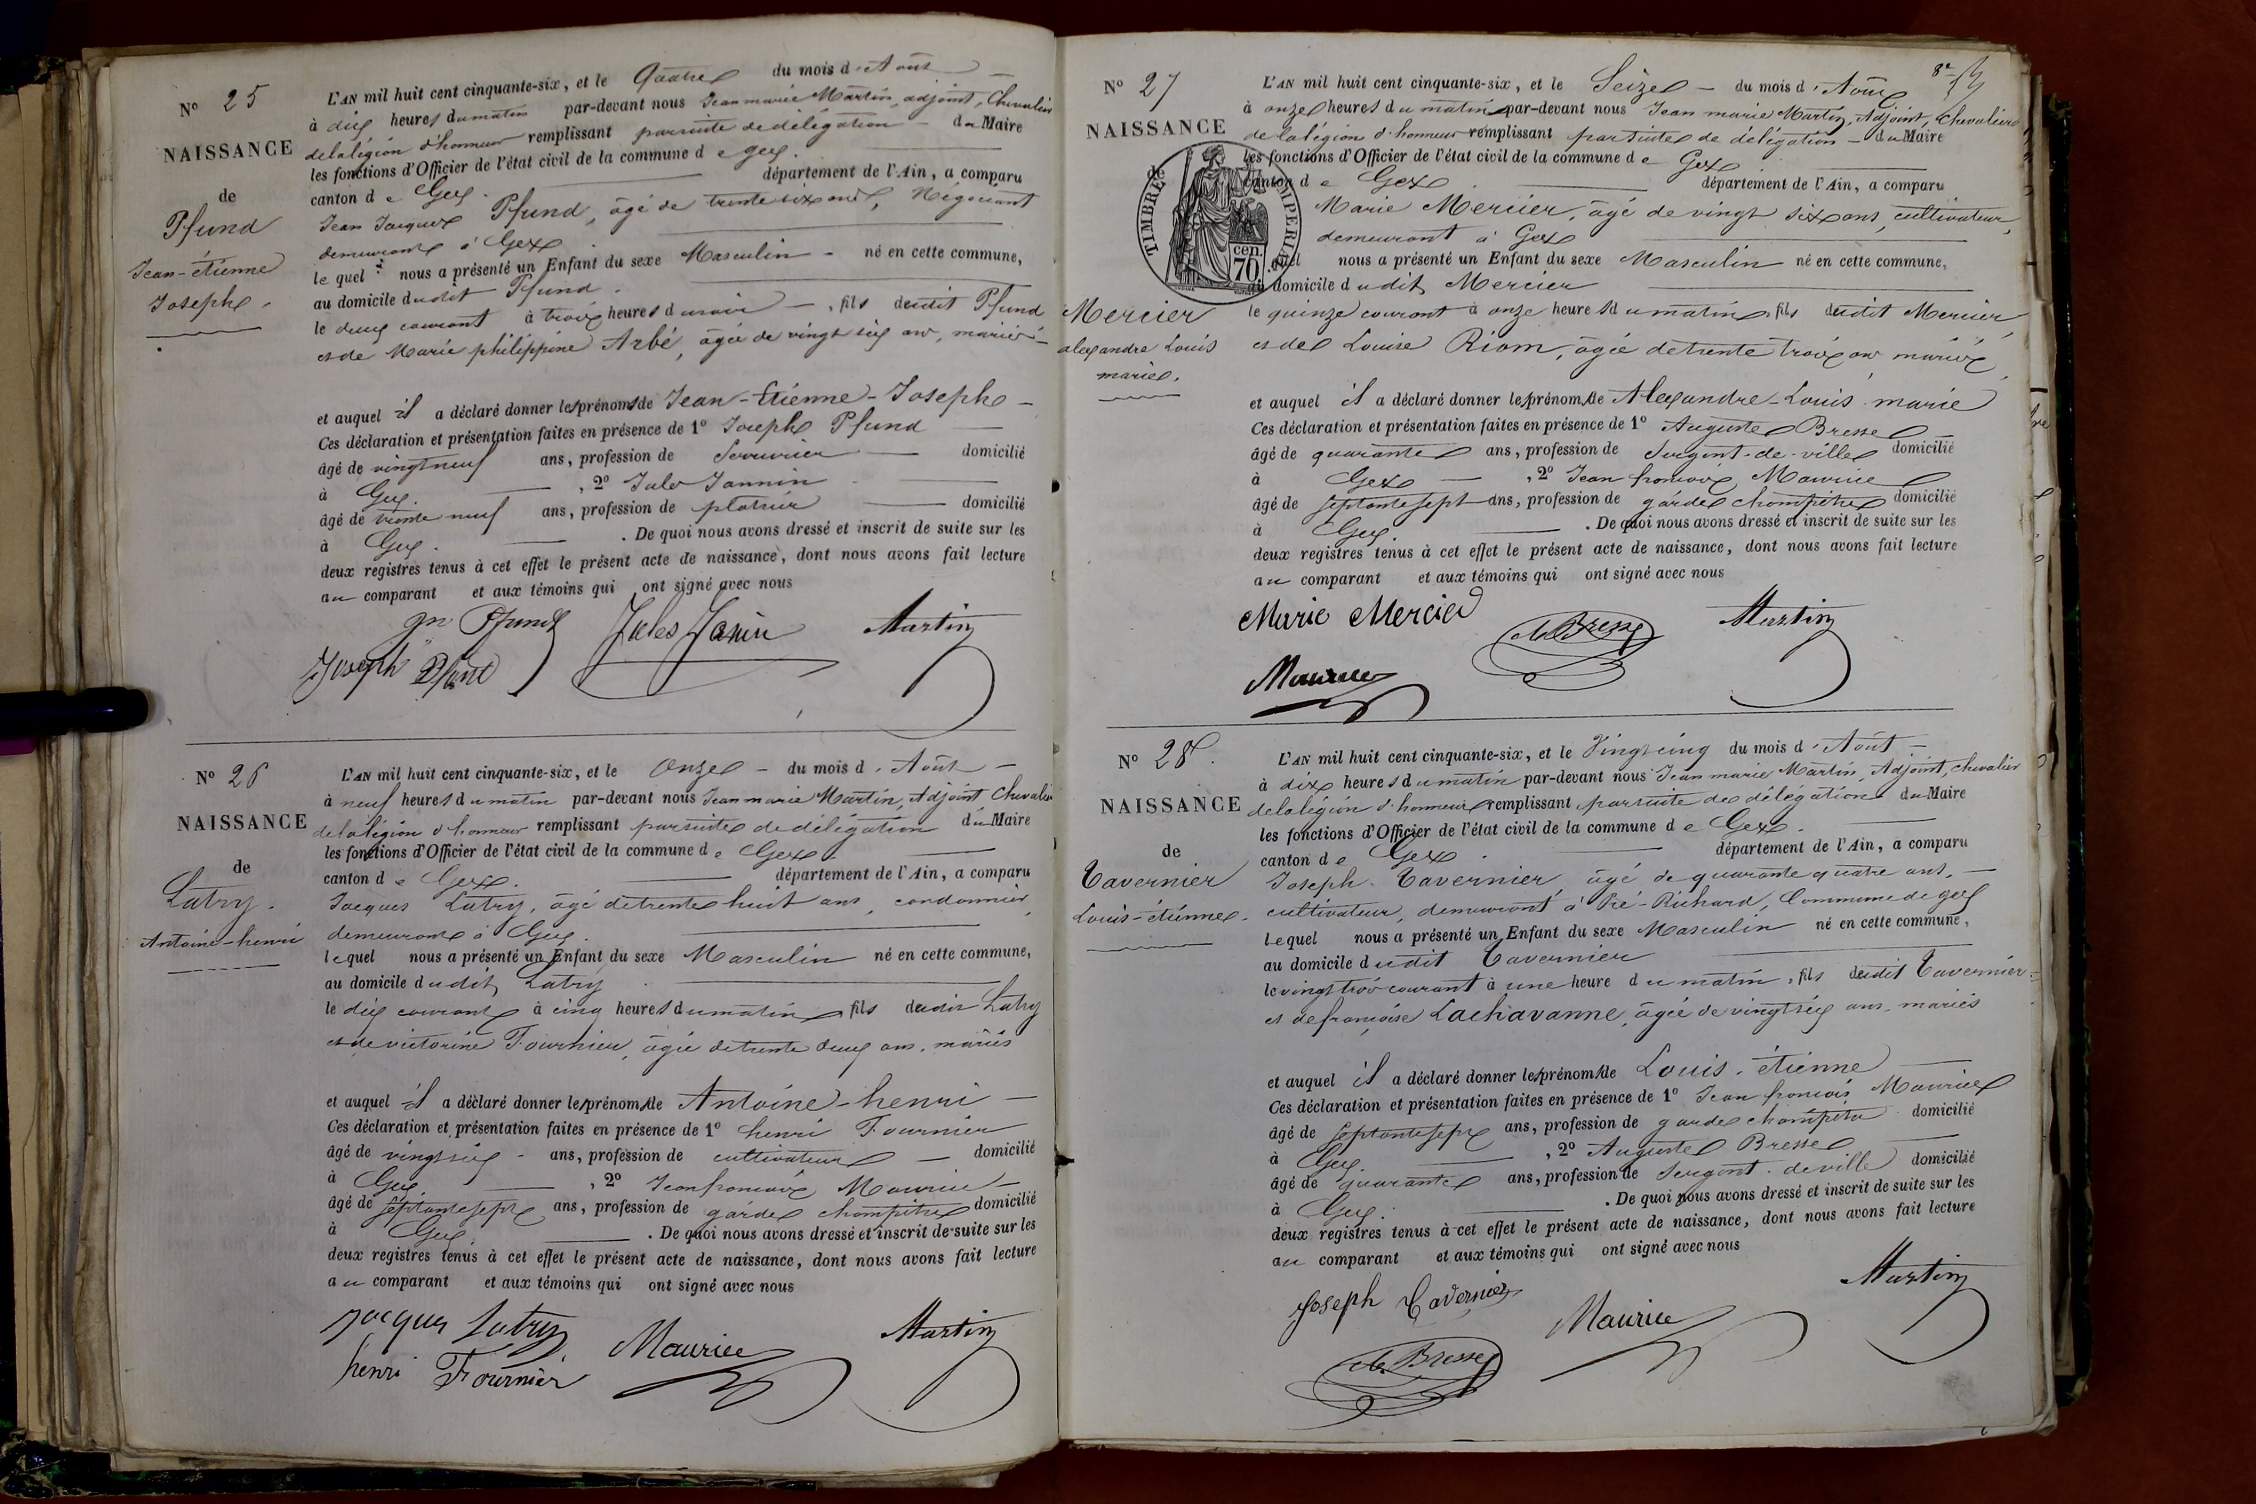 N° 25
NAISSANCE
de
Pfund
Jean-étienne
Joseph.
L'AN mil huit cent cinquante-six, et le Quatre du mois d'Août
à dix heures du matin par-devant nous Jean marie Martin, adjoint, Chevalier
de la légion d'honneur remplissant par suite de délégation du Maire
les fonctions d'Officier de l'état civil de la commune de gex.
canton de Gex. département de l'Ain, a comparu
Jean Jacques Pfund, âgé de trente six ans, Négociant
demeurant à Gex.
le quel nous a présenté un Enfant du sexe Masculin né en cette commune,
au domicile dudit Pfund.
le deux courant à trois heures du soir, fils dudit Pfund
et de Marie philippine Arbé, âgée de vingt six ans, mariés
et auquel il a déclaré donner les prénoms de Jean-Etienne-Joseph
Ces déclaration et présentation faites en présence de 1° Joseph Pfund
âgé de vingt neuf ans, profession de Serrurier domicilié
à Gex. , 2° Jules Jannin
âgé de trente neuf ans, profession de platrier domicilié
à Gex. . De quoi nous avons dressé et inscrit de suite sur les
deux registres tenus à cet effet le présent acte de naissance, dont nous avons fait lecture
au comparant et aux témoins qui ont signé avec nous
Pfund Jules Janin Martin
Joseph Pfund
N° 26
NAISSANCE
de
Latry.
Antoine-henri
L'AN mil huit cent cinquante-six, et le Onze du mois d'Août
à neuf heures du matin par-devant nous Jean marie Martin, Adjoint Chevalier
de la légion d'honneur remplissant par suite de délégation du Maire
les fonctions d'Officier de l'état civil de la commune de Gex.
canton de Gex. département de l'Ain, a comparu
Jacques Latry, âgé de trente huit ans, cordonnier,
demeurant à Gex.
lequel nous a présenté un Enfant du sexe Masculin né en cette commune,
au domicile dudit Latry
le dix courant à cinq heures du matin, fils dudit Latry
et de victorine Fournier, âgée de trente deux ans, mariés
et auquel il a déclaré donner les prénoms de Antoine-henri
Ces déclaration et présentation faites en présence de 1° henri Fournier
âgé de vingt six ans, profession de cultivateur domicilié
à Gex , 2° Jean françois Maurice
âgé de septante sept ans, profession de garde champêtre domicilié
à Gex. . De quoi nous avons dressé et inscrit de suite sur les
deux registres tenus à cet effet le présent acte de naissance, dont nous avons fait lecture
au comparant et aux témoins qui ont signé avec nous
Jacques Latry Maurice Martin
henri Fournier
8e
N° 27
NAISSANCE
de
TIMBRE IMPERIAL
70 cen.
Mercier
alexandre Louis
marie.
L'AN mil huit cent cinquante-six, et le Seize du mois d'Août
à onze heures du matin par-devant nous Jean marie Martin, Adjoint, Chevalier
de la légion d'honneur remplissant par suite de délégation du Maire
les fonctions d'Officier de l'état civil de la commune de Gex
canton de Gex département de l'Ain, a comparu
Marie Mercier, âgé de vingt six ans, cultivateur,
demeurant à Gex
quel nous a présenté un Enfant du sexe Masculin né en cette commune,
au domicile dudit Mercier
le quinze courant à onze heures du matin, fils dudit Mercier,
et de Louise Riom, âgée de trente trois ans mariés,
et auquel il a déclaré donner les prénoms de Alexandre-Louis marie
Ces déclaration et présentation faites en présence de 1° Auguste Bresse
âgé de quarante ans, profession de Sergent-de-ville domicilié
à Gex , 2° Jean françois Maurice
âgé de septante sept ans, profession de garde champêtre domicilié
à Gex. . De quoi nous avons dressé et inscrit de suite sur les
deux registres tenus à cet effet le présent acte de naissance, dont nous avons fait lecture
au comparant et aux témoins qui ont signé avec nous
Marie Mercier Bresse Martin
Maurice
N° 28.
NAISSANCE
de
Tavernier
Louis-étienne.
L'AN mil huit cent cinquante-six, et le Vingt cinq du mois d'Août
à dix heures du matin par-devant nous Jean marie Martin, Adjoint, chevalier
de la légion d'honneur remplissant par suite de délégation du Maire
les fonctions d'Officier de l'état civil de la commune de Gex.
canton de Gex. département de l'Ain, a comparu
Joseph Tavernier, âgé de quarante quatre ans,
cultivateur, demeurant à Pré-Richard, Commune de gex
Lequel nous a présenté un Enfant du sexe Masculin né en cette commune,
au domicile dudit Tavernier
le vingt trois courant à une heure du matin, fils dudit Tavernier
et de françoise Lachavanne, âgée de vingt six ans, mariés
et auquel il a déclaré donner les prénoms de Louis-étienne
Ces déclaration et présentation faites en présence de 1° Jean françois Maurice
âgé de septante sept ans, profession de garde champêtre domicilié
à Gex. , 2° Auguste Bresse
âgé de quarante ans, profession de Sergent de ville domicilié
à Gex. . De quoi nous avons dressé et inscrit de suite sur les
deux registres tenus à cet effet le présent acte de naissance, dont nous avons fait lecture
au comparant et aux témoins qui ont signé avec nous
Joseph Tavernier Maurice Martin
Bresse